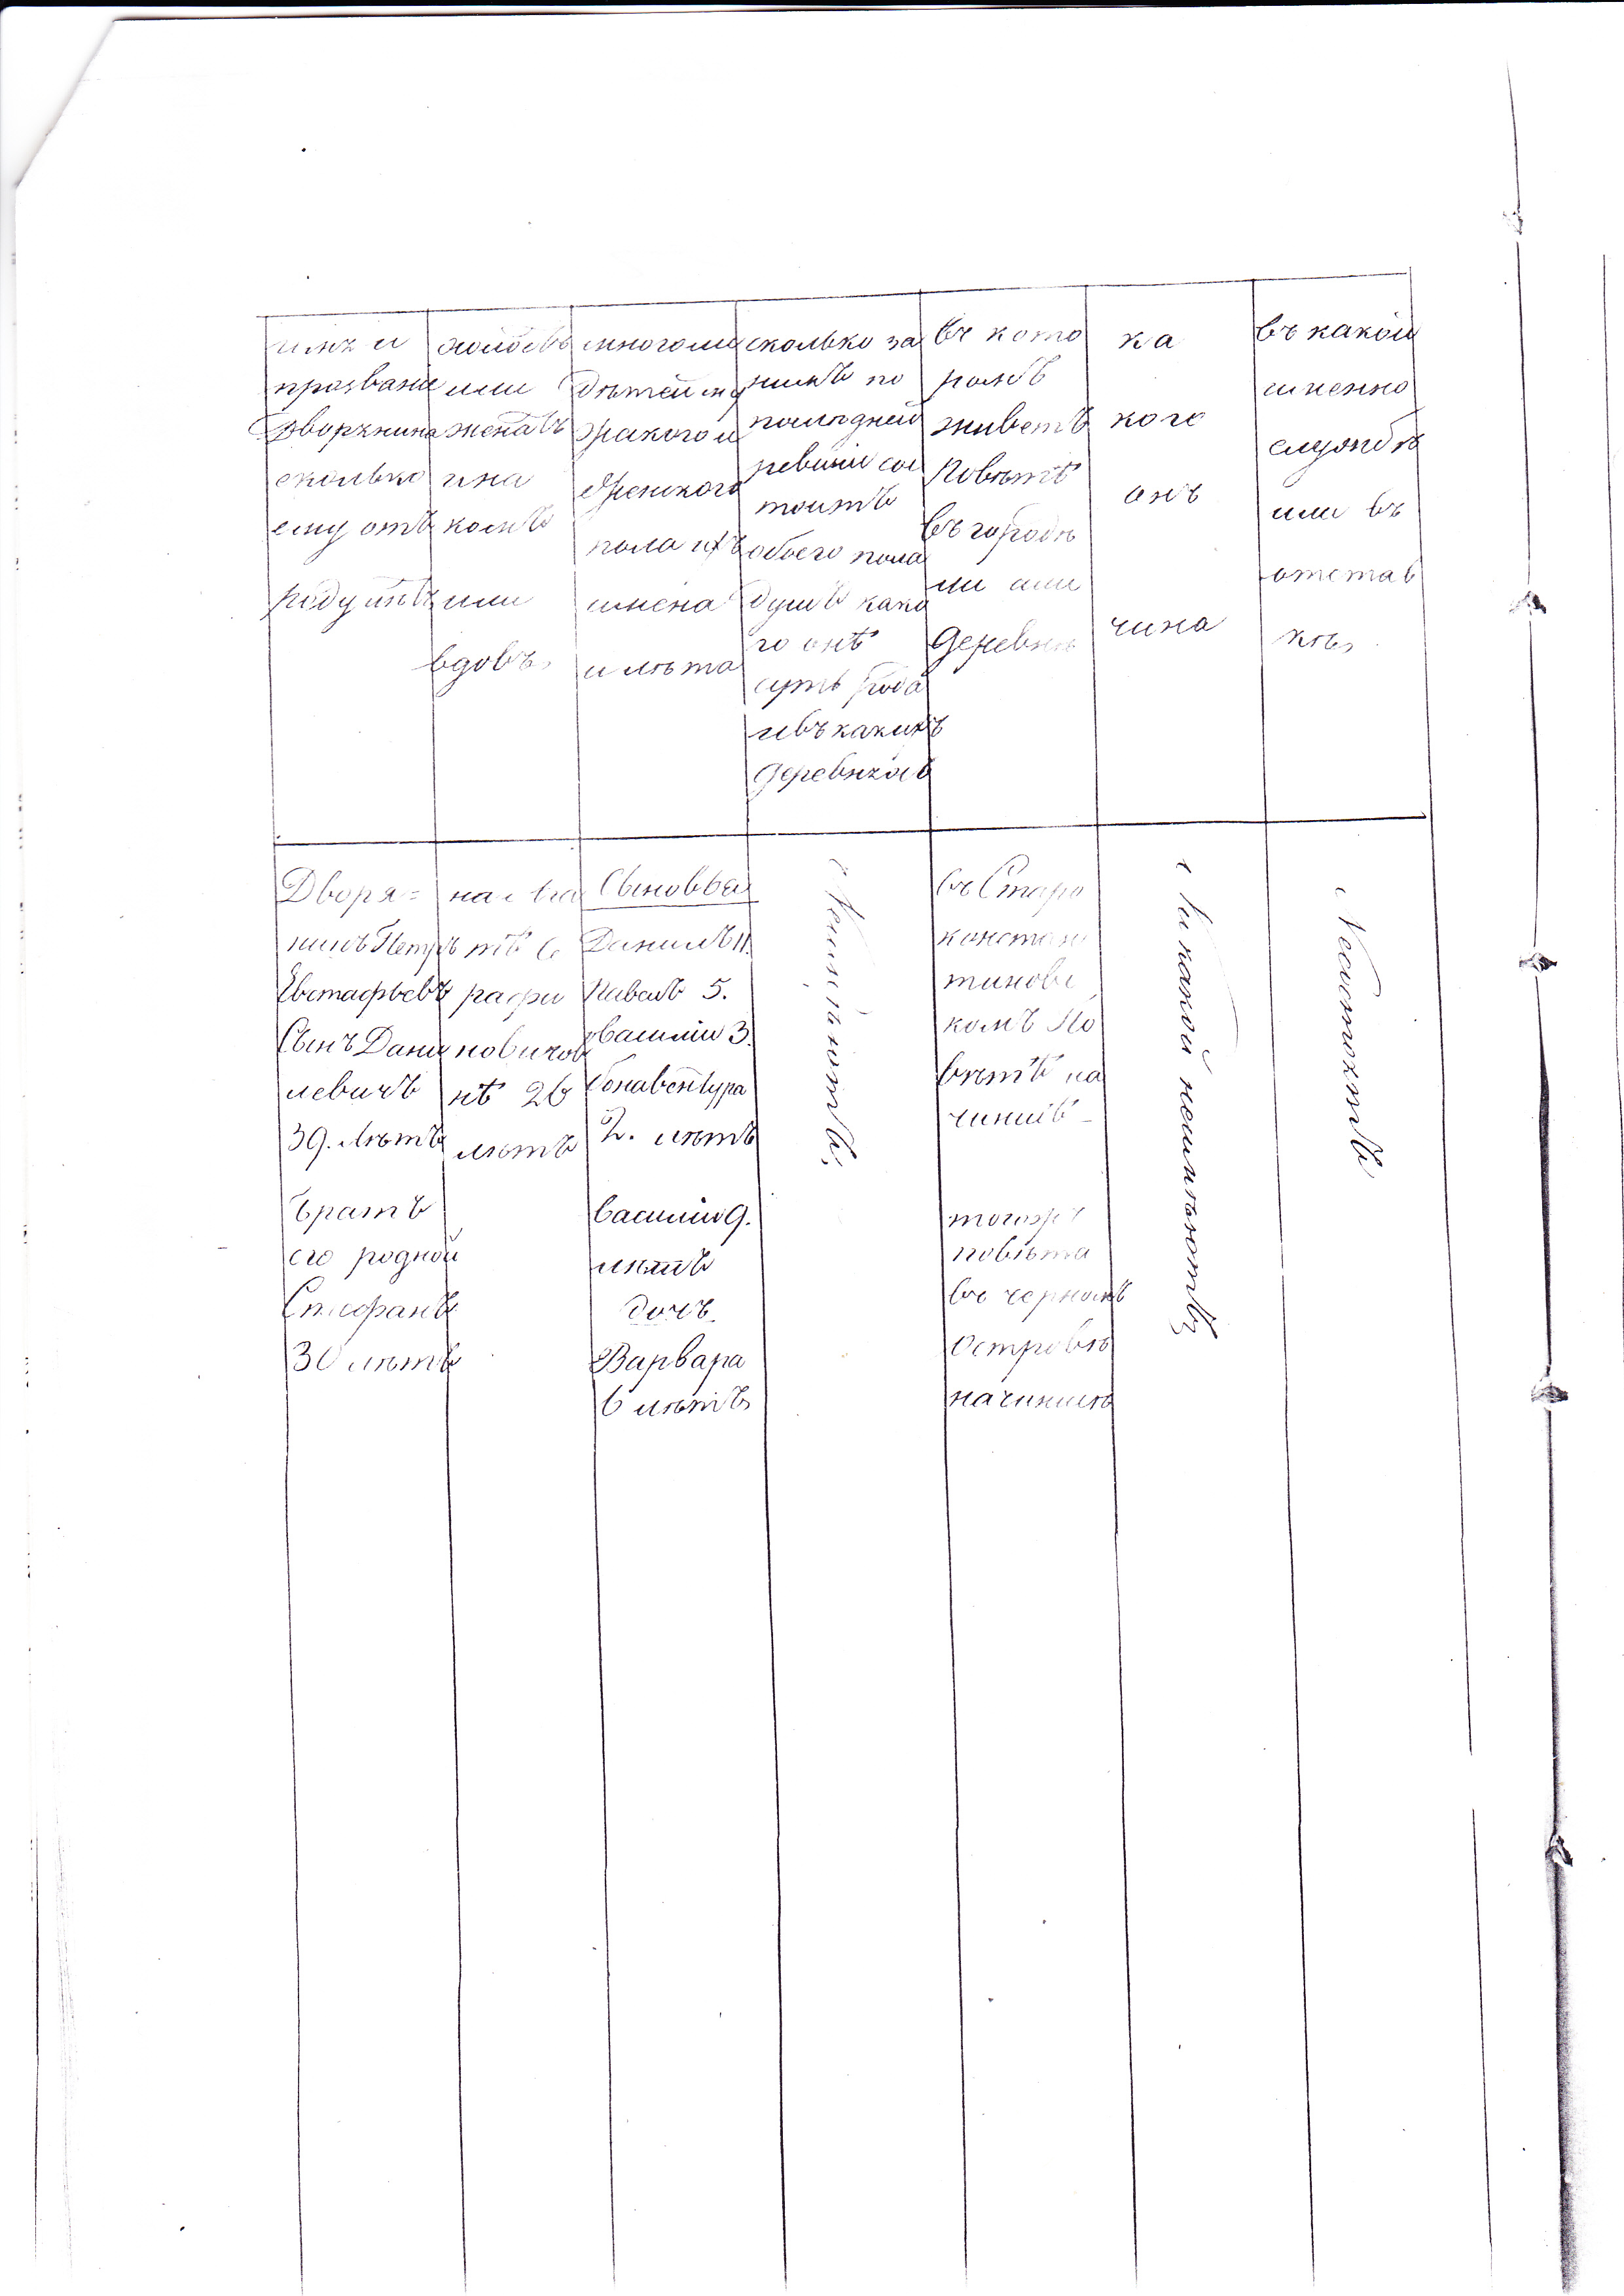 имя и
прозвание
дворянина
сколько
ему отъ
роду летъ
холостъ
или
женатъ
и на
комъ
или
вдовъ,
многоли
детей му
жскаго и
женскаго
пола ихъ
имена
и лѣта
сколько за
нимъ по
последней
ревизии сос
тоитъ
обоего пола
душъ како
го онѣ
суть рода
ивъ какихъ
деревняхъ
въ кото
ромъ
живетъ
Поветѣ
въ городѣ
ли или
деревнѣ
ка
кого
онъ
чина
въ какой
именно
службѣ
или въ
отстав
кѣ,
Дворя=
нинъ Петръ
Евстафьевъ
Сынъ Дани
левичъ
39. Лѣтъ
братъ
его родной
Стефанъ
30 лѣтъ
рафи
новичов
нѣ 26
лѣтъ
Сыновья
Данилъ 11.
Павелъ 5.
василій 3.
бонавентура
2. лѣтъ
василій 9.
лѣтъ
дочъ
Варвара
6 лѣтъ
Неимѣютъ,
въ Старо
констан
тиновс
комъ По
вѣтѣ на
чиншѣ
тогожъ
повѣта
въ черномъ
Островѣ
начиншѣ
Никакой неимѣютъ
Несостоятъ